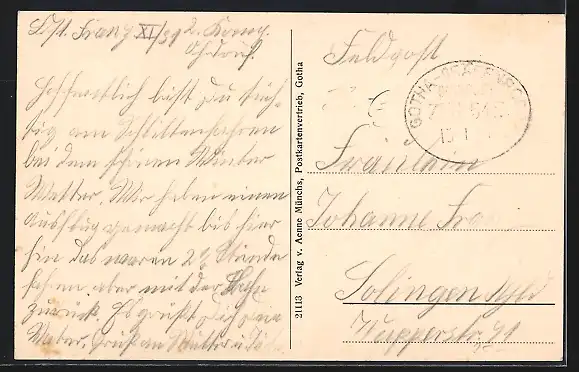 Franz XI/
2. Komp.
Ohrdruf.
Hoffentlich bist du tüch-
tig am Schlittenfahren
bei dem schönen Winter
Wetter. Wir haben einen
Ausflug gemacht bis hier
hin das waren 2½ Stunde
fahren aber mit der Bahn
zurück. Es grüßt dich dein
Vater. Gruß an Mutter u.
21113 Verlag v. Aenne Münchs, Postkartenvertrieb, Gotha
Feldpost
GOTHA
Fräulein
Johanne
Solingen
Wupperstr. 91